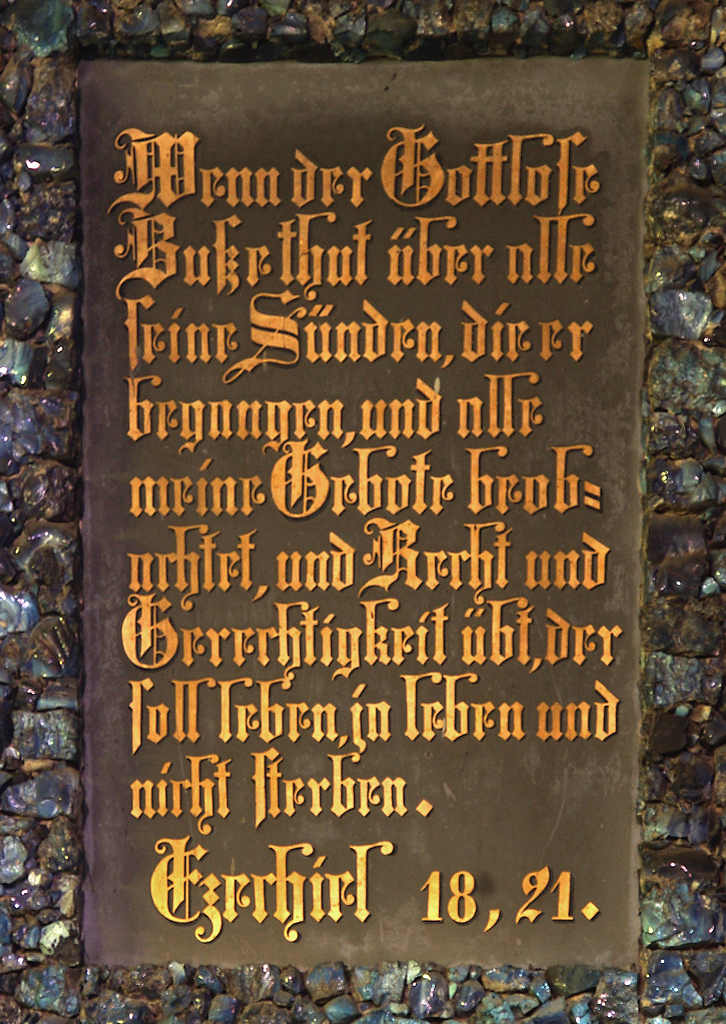 Wenn der Gottlose
Buße thut über alle
seine Sünden, die er
begangen, und alle
meine Gebote beob=
achtet, und Recht und
Gerechtigkeit übt, der
soll leben, ja leben und
nicht sterben.
Ezechiel 18, 21.